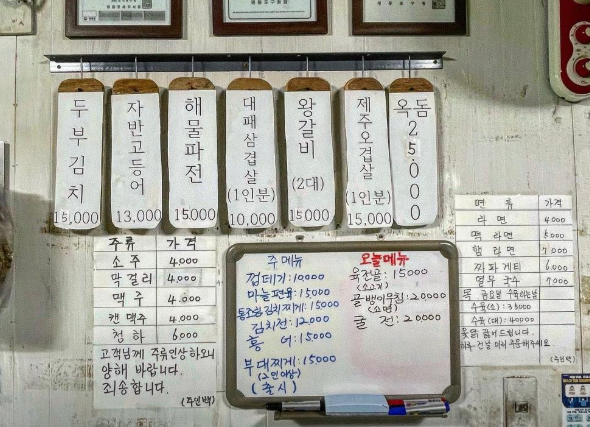 두부김치
15,000
자반고등어
13,000
해물파전
15,000
대패삼겹살
(1인분)
10,000
왕갈비
(2대)
15,000
제주오겹살
(1인분)
15,000
옥돔
25,000
주류 가격
소주 4,000
막걸리 4,000
맥주 4,000
캔맥주 4,000
청하 6000
고객님께 주류인상하오니
양해 바랍니다.
죄송합니다.
(주인백)
주메뉴
껍데기:10,000
마늘편육:15000
김치찌개:15000
김치전:12000
홍어:15000
부대찌게:15000
(2인이상)
(출시)
오늘메뉴
육전골:15000
(소고기)
골뱅이무침:20000
(소면)
굴전:20000
면류 가격
라면 4,000
떡라면 5,000
햄라면 7,000
짜파게티 6,000
열무국수 7,000
수육(소):35000
수육(대):40000
(주인백)